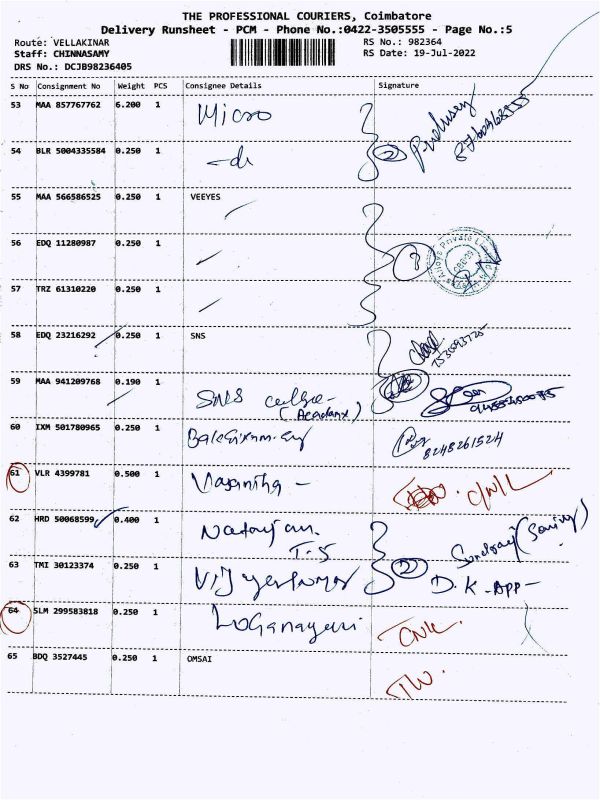 THE PROFESSIONAL COURIERS, Coimbatore
Delivery Runsheet - PCM - Phone No.:0422-3505555 - Page No.:5
Route: VELLAKINAR RS No.: 982364
Staff: CHINNASAMY RS Date: 19-Jul-2022
DRS No.: DCJB98236405
S No Consignment No Weight PCS Consignee Details Signature
53 MAA 857767762 6.200 1 Micro
54 BLR 5004335584 0.250 1 -do 2
55 MAA 566586525 0.250 1 VEEYES
56 EDQ 11280987 0.250 1 3
57 TRZ 61310220 0.250 1
58 EDQ 23216292 0.250 1 SNS
59 MAA 941209768 0.190 1 SNS college
(Academy)
60 IXM 501780965 0.250 1 8248261524
61 VLR 4399781 0.500 1 Vasantha - C/N/L
62 HRD 50068599 0.400 1 Natarajan.
T.S
63 TMI 30123374 0.250 1 2 D.K - APP -
64 SLM 299583818 0.250 1 Loganayaki CNL.
65 BDQ 3527445 0.250 1 OMSAI TW.